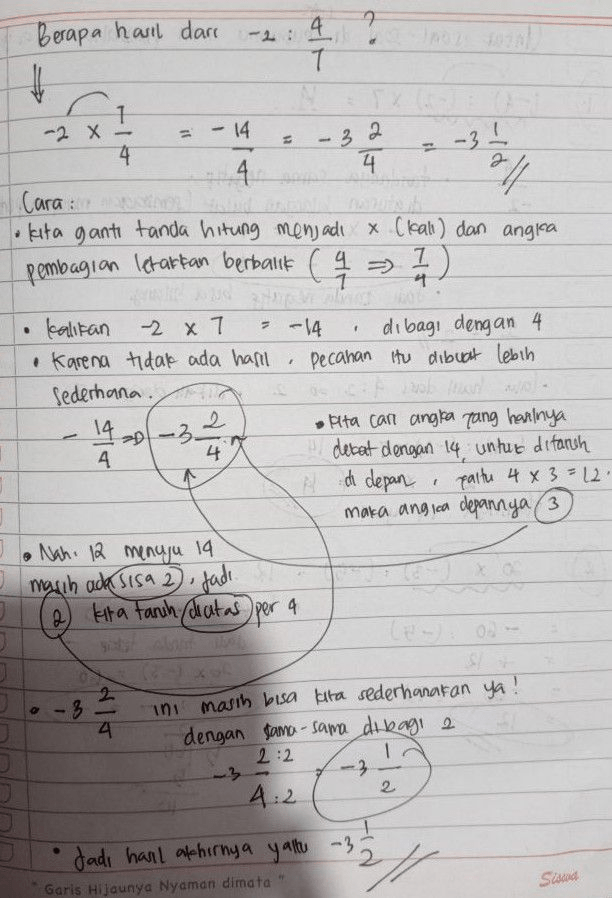 Berapa hasil dari -2 : 4/7 ?
-2 × 7/4 = -14/4 = -3 2/4 = -3 1/2 //
Cara :
• kita ganti tanda hitung menjadi x (kali) dan angka
pembagian letakkan berbalik ( 4/7 ⇒ 7/4 )
• kalikan -2 × 7 = -14 , dibagi dengan 4
• Karena tidak ada hasil , pecahan itu dibuat lebih
sederhana.
- 14/4 ⇒ -3 2/4
• kita cari angka yang hasilnya
dekat dengan 14, untuk ditaruh
di depan , yaitu 4 × 3 = 12.
maka angka depannya 3
• Nah. 12 menuju 14
masih ada sisa 2 , Jadi
2 kita taruh diatas per 4
• -3 2/4 ini masih bisa kita sederhanakan ya !
dengan sama-sama dibagi 2
-3 2:2/4:2 = -3 1/2
• Jadi hasil akhirnya yaitu -3 1/2 //
" Garis Hijaunya Nyaman dimata "
Siswa